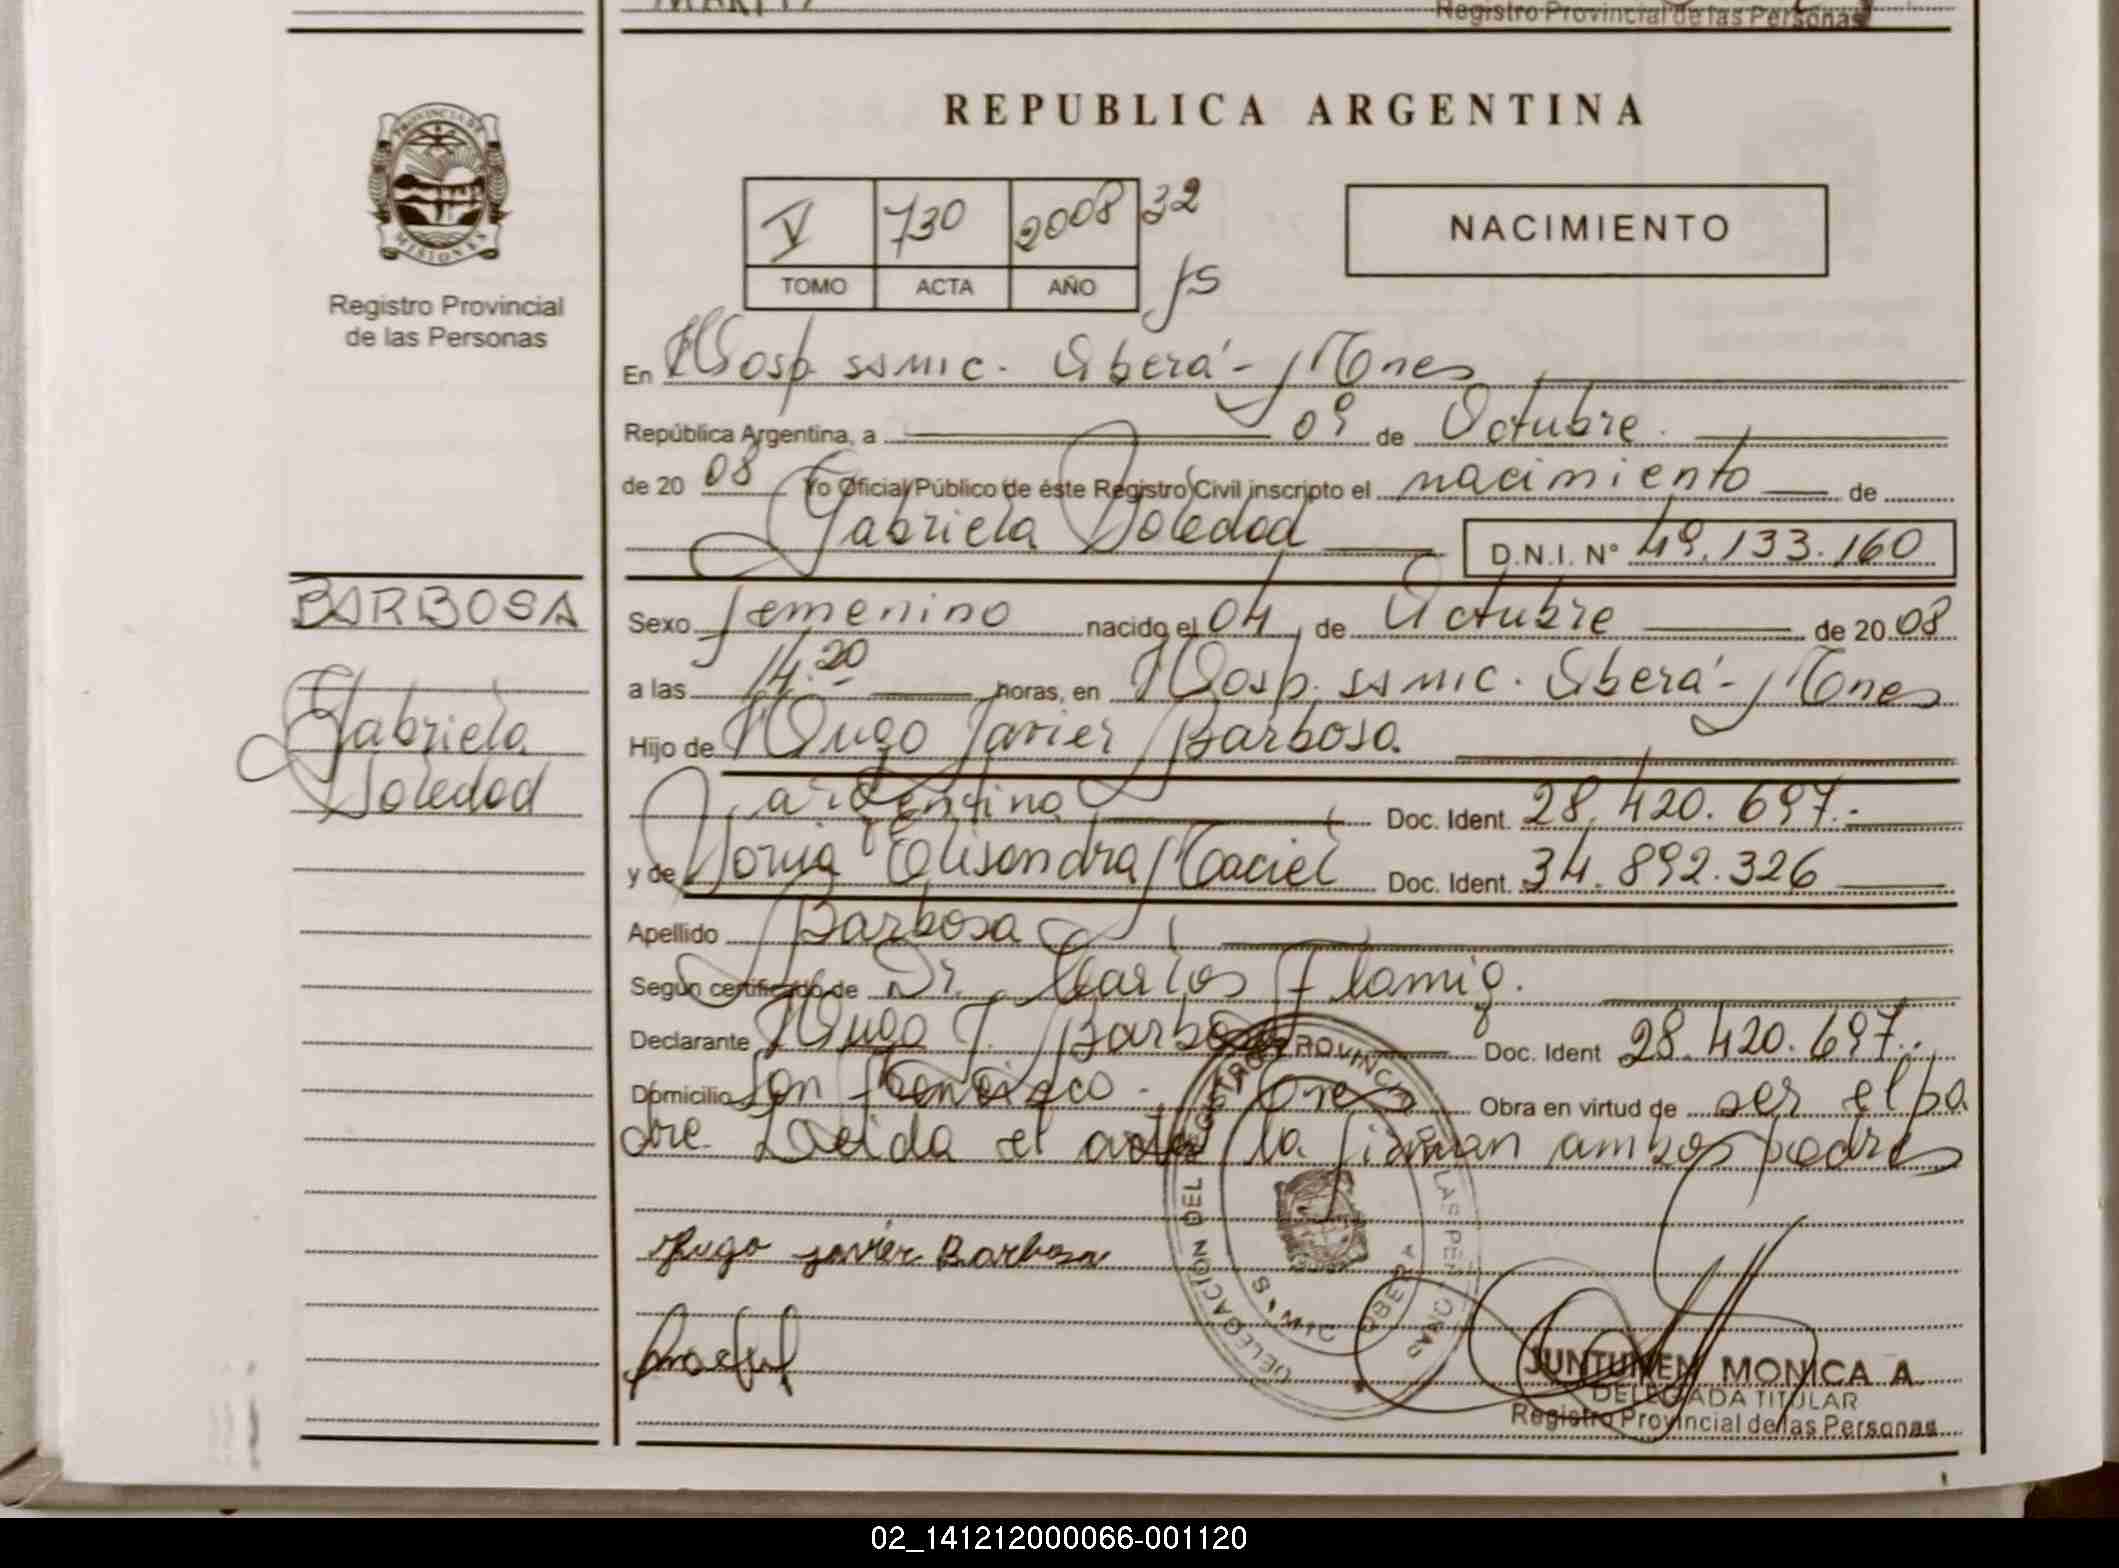 Registro Provincial de las Personas
REPUBLICA ARGENTINA
PROVINCIA DE
MISIONES
Registro Provincial
de las Personas
V 730 2008 32
TOMO ACTA AÑO fs
NACIMIENTO
En Hosp. SAMIC. Oberá - Mnes
República Argentina, a 09 de Octubre.
de 20 08 Yo Oficial Público de éste Registro Civil inscripto el nacimiento de
Gabriela Soledad D.N.I. Nº 49.133.160
BARBOSA
Gabriela
Soledad
Sexo femenino nacido el 04 de Octubre de 20 08
a las 14.20 horas, en Hosp. SAMIC. Oberá - Mnes
Hijo de Hugo Javier Barbosa
argentina Doc. Ident. 28.420.697.-
y de Maciel Doc. Ident. 34.892.326
Apellido Barbosa
Según certificado de Dr. Carlos Flamig.
Declarante Hugo J. Barbosa Doc. Ident 28.420.697.-
Domicilio San Francisco - Mnes Obra en virtud de ser el pa
dre Leida el acta la firman ambos padres
Hugo Javier Barbosa
DELEGACION DEL REGISTRO PROVINCIAL DE LAS PERSONAS
SAMIC OBERA
JUNTUNEN MONICA A.
DELEGADA TITULAR
Registro Provincial de las Personas
02_141212000066-001120